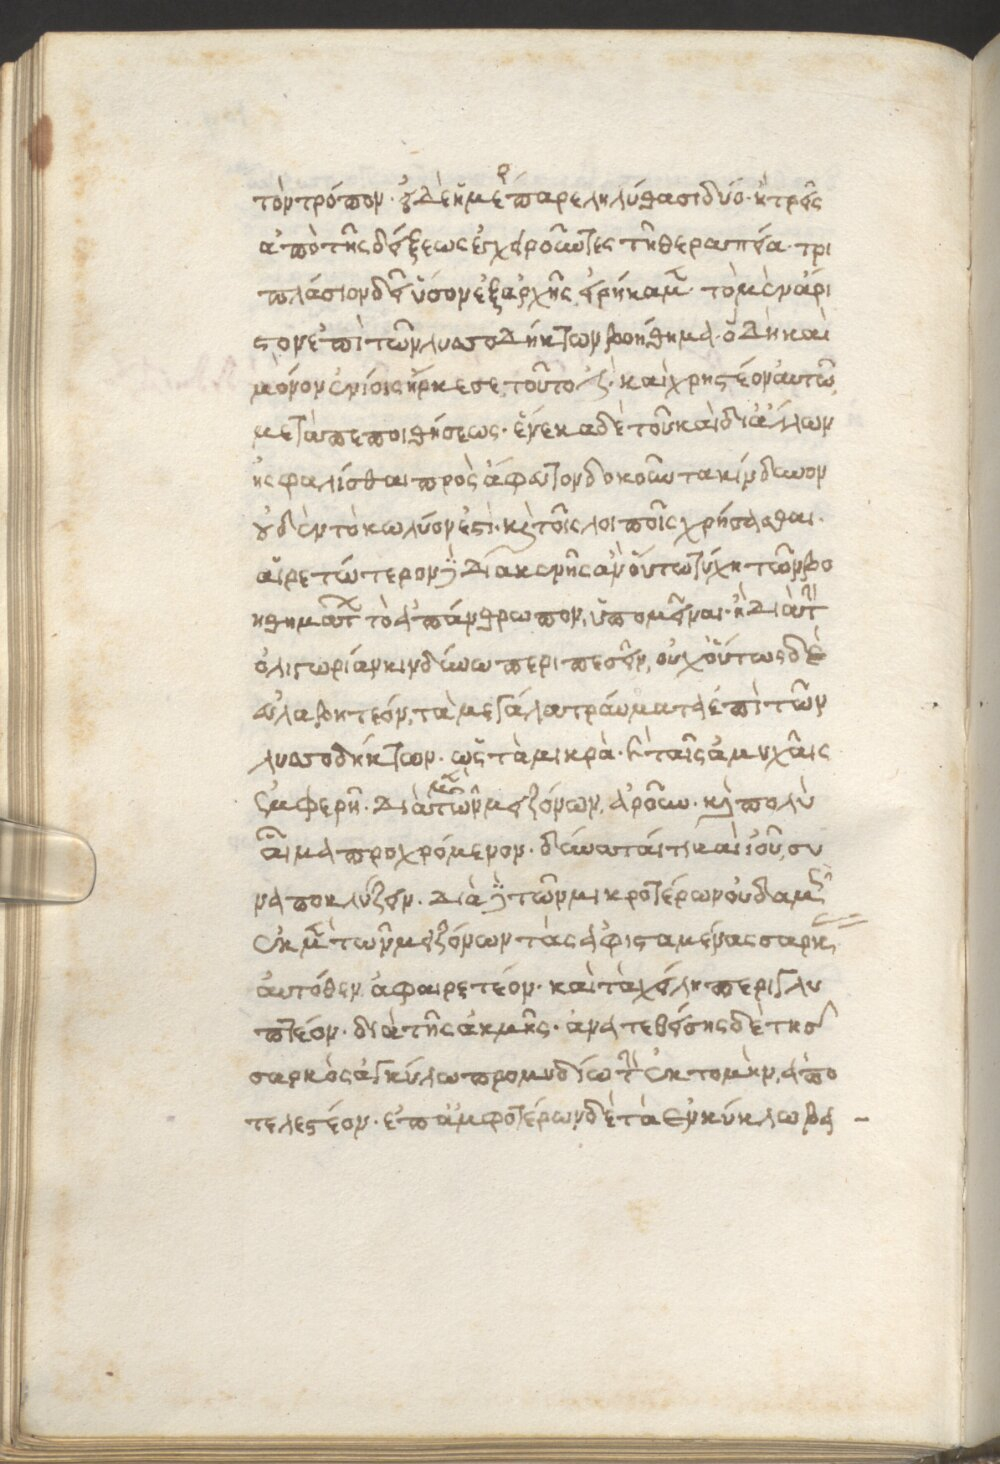 τὸν τρόπον· εἰ δὲ ἡμέραι παρεληλύθασι δύο· ἢ τρεῖς
ἀπὸ τῆς δήξεως ἐγχειροῦντες τῇ θεραπεία· τρι
πλάσιον δεῖ ὕσον ἐξαρχῆς εἰρήκαμεν· τὸ μὲν ἄρι
στον ἐπὶ τῶν λυσσοδήκτων βοήθημα· ὃ δὴ καὶ
μόνον ἐνίοις ἤρκεσε, τοῦτό ἐστι· καὶ χρηστέον αὐτῶ
μετὰ πεποιθήσεως· ἕνεκα δὲ τοῦ καὶ δι' ἄλλων
ἠσφαλίσθαι πρὸς ἄφυκτον δοκοῦντα κίνδυνον
οὐδὲν τὸ κωλῦον ἐστὶ· καὶ τοῖς λοιποῖς χρήσασθαι·
αἱρετώτερον γὰρ διακενῆς ἂν οὕτω τύχη τῶν βο
ηθημάτων τὸ ἀπάνθρωπον, ὑπομεῖναι· ἢ διὰ τὴν
ὀλιγωρίαν κινδύνω περιπεσεῖν, οὐχ οὕτως δὲ
εὐλαβητέον, τὰ μεγάλα τραύματα ἐπὶ τῶν
λυσσοδήκτων· ὡς τὰ μικρὰ· καὶ ταῖς ἀμυχαῖς
ἐμφερῆ· διὰ μὲν τῶν μειζόνων, ἀθροῦν· καὶ πολὺ
αἷμα προχεόμενον· δύναταί τι καὶ ἰοῦ, συ
ναποκλύζειν· διὰ γὰρ τῶν μικροτέρων οὐδαμῶς
ἐκ μὲν τῶν μειζόνων τὰς ἀφισταμένας σάρκας,
αὐτόθεν ἀφαιρετέον· καὶ τὰ χείλη περιγλυ
πτέον· διὰ τῆς ἀκμῆς· ἀνατεθείσης δὲ τῆς
σαρκὸς ἀγκύλω προμυδίω τὴν ἐκτομὴν, ἀπο
τελεστέον· ἐπ' ἀμφοτέρων δὲ τὰ ἐν κύκλω βα –